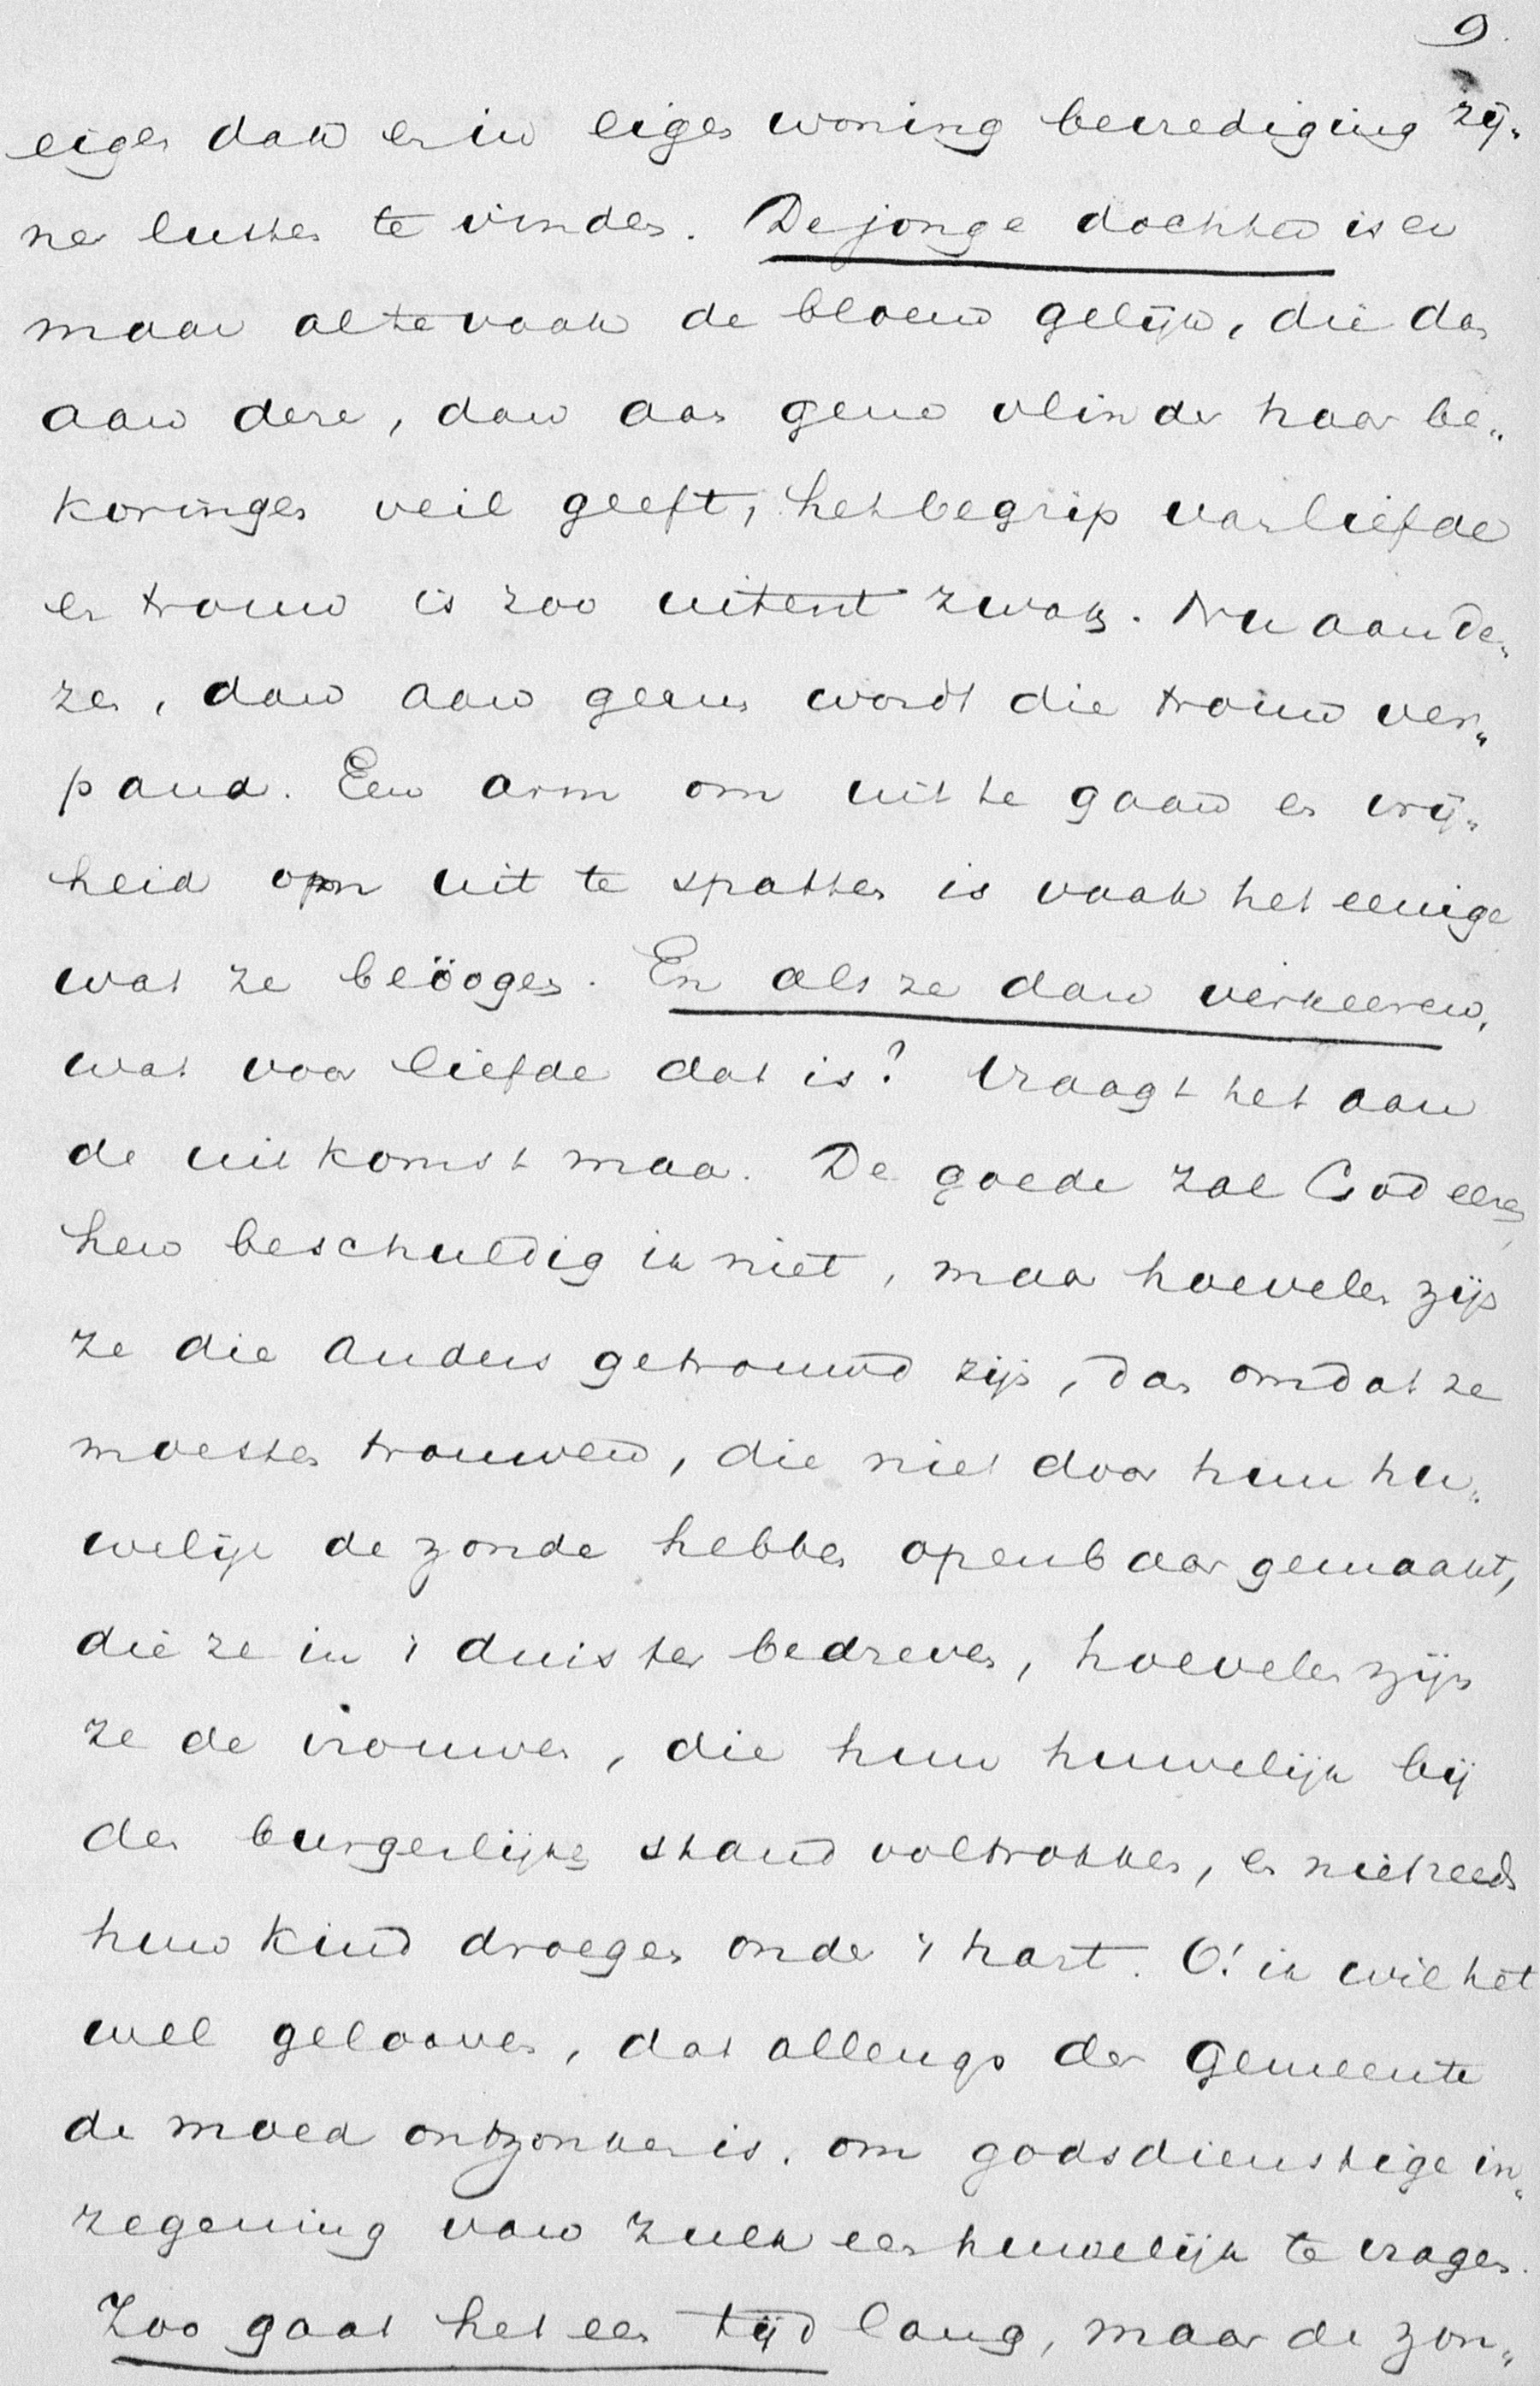 9.
eigen dak en in eigen woning bevrediging zij„
ner lusten te vinden. De jonge dochter is er
maar al te vaak de bloem gelijk, die dan
aan dere, dan aan gene vlinder haar be„
koringen veil geeft, het begrip van liefde
en trouw is zoo uitent zwak. Nu aan de„
zen, dan aan geenen wordt die trouw ver„
pand. Een arm om uit te gaan en vrij„
heid om uit te spatten is vaak het eenige
wat ze beöogen. En als ze dan verkeeren,
wat voor liefde dat is? Vraagt het aan
de uitkomst maar. De goede zal God eeren,
hen beschuldig ik niet, maar hoevelen zijn
ze die anders getrouwd zijn, dan omdat ze
moesten trouwen, die niet door hun hu„
welijk de zonde hebben openbaar gemaakt,
die ze in 't duister bedreven, hoevelen zijn
ze de vrouwen, die hun huwelijk bij
den burgerlijken stand voltrokken, en niet reeds
hun kind droegen onder 't hart. O! ik wil het
wel gelooven, dat allengs der Gemeente
de moed ontzonken is, om godsdienstige in„
zegening van zulk een huwelijk te vragen.
Zoo gaat het een tijd lang, maar de zon„